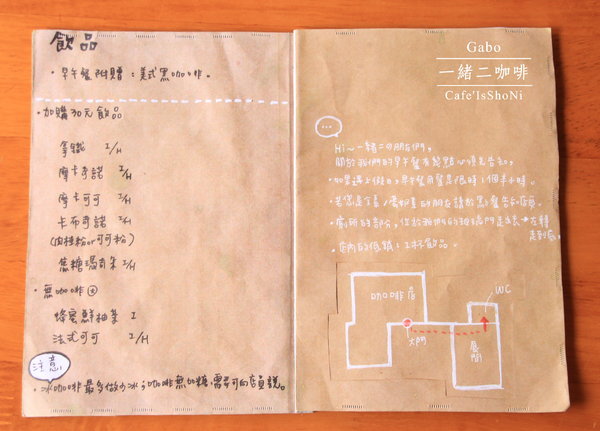 飲品
・早午餐附贈：美式黑咖啡。
・加購30元飲品
拿鐵 I/H
摩卡奇諾 I/H
摩卡可可 I/H
卡布奇諾 I/H
(肉桂粉or可可粉)
焦糖瑪奇朵 I/H
・無咖啡因
蜂蜜鮮柚茶 I
法式可可 I/H
注意
・冰咖啡最多做少冰，咖啡無加糖，需要可向店員說。
Gabo
一緒二咖啡
Cafe'IsShoNi
...
Hi～一緒二の朋友們，
關於我們的早午餐有幾點心得先告知。
・如果遇上假日，早午餐用餐是限時1個半小時。
・若您是ㄘ素，需奶素的朋友請於點餐告知店員。
・廁所的部分，位於我們的玻璃門走出去→右轉
走到底。
・店內の低銷：1杯飲品。
咖啡店
大門
WC
展間